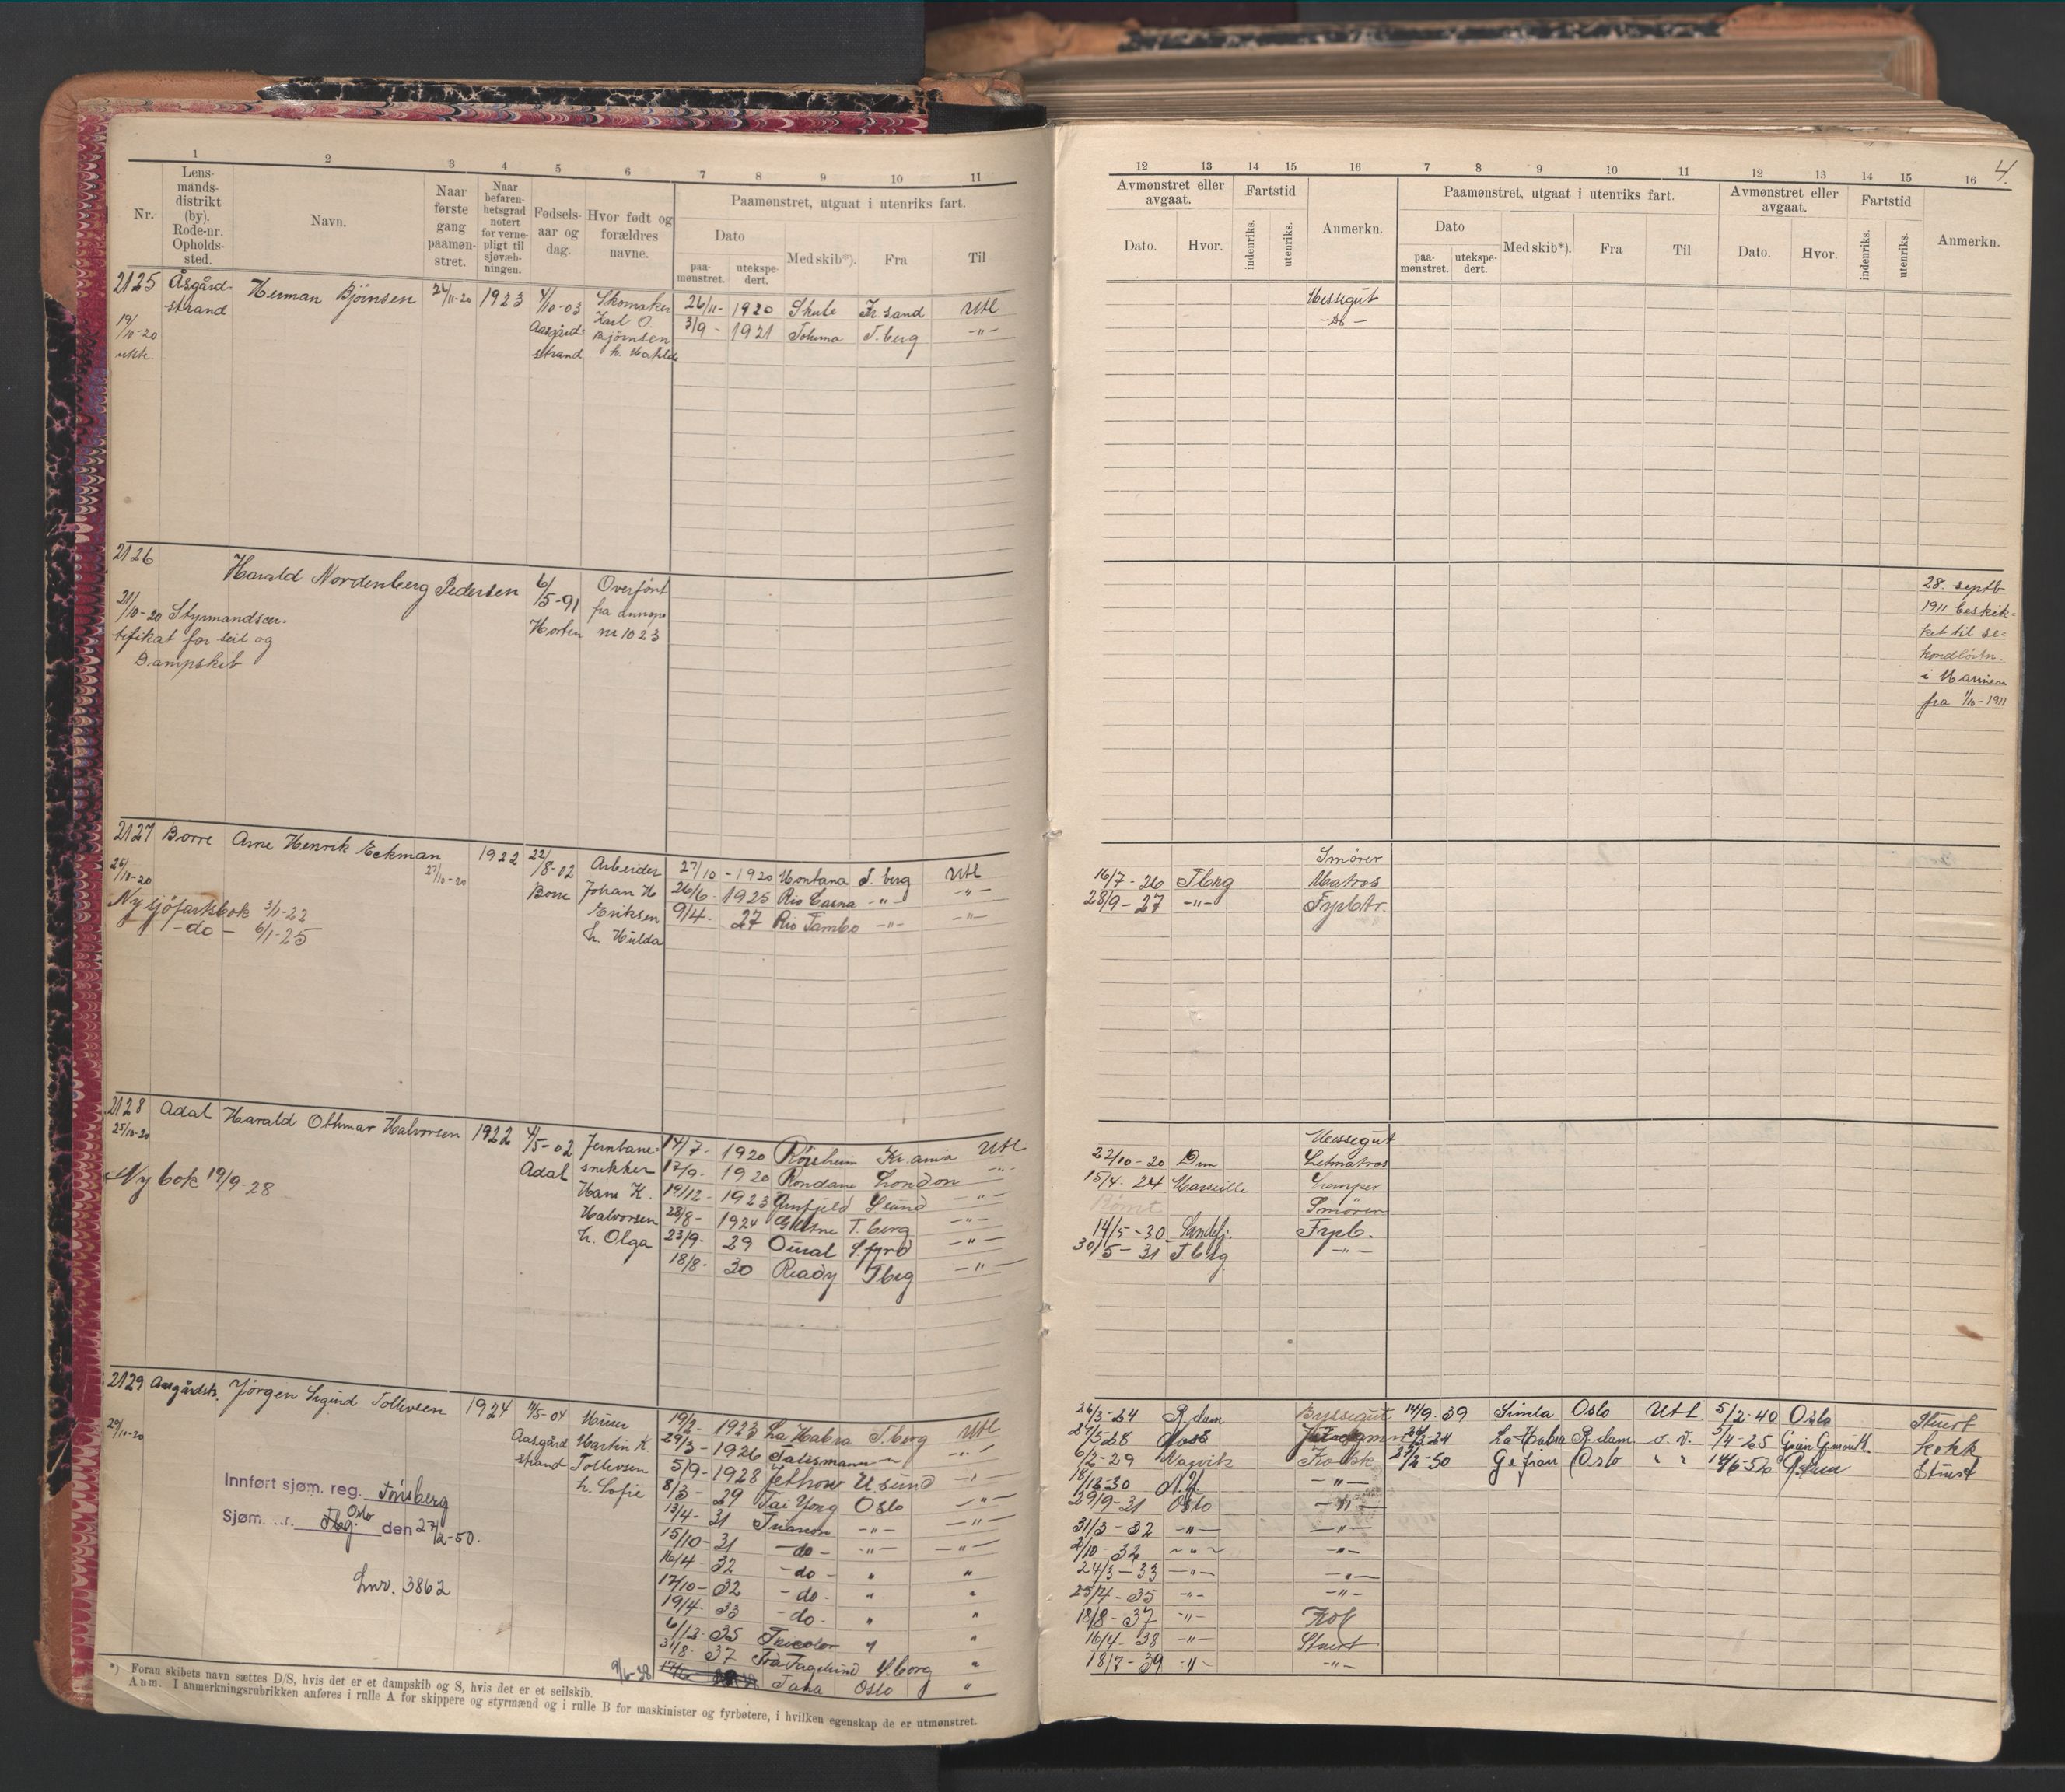 4.
1 2 3 4 5 6 7 8 9 10 11
Nr.
Lens-
mands-
distrikt
(by).
Rode-nr.
Opholds-
sted.
Navn.
Naar
første
gang
paamøn-
stret.
Naar
befaren-
hetsgrad
notert
for verne-
pligt til
sjøvæb-
ningen.
Fødsels-
aar og
dag.
Hvor født og
forældres
navne.
Paamønstret, utgaat i utenriks fart.
Dato
paa-
mønstret.
utekspe-
dert.
Med skib*).
Fra
Til
12 13 14 15 16 7 8 9 10 11 12 13 14 15 16
Avmønstret eller
avgaat.
Fartstid
Dato. Hvor. indenriks. utenriks. Anmerkn.
Paamønstret, utgaat i utenriks fart.
Dato
paa-
mønstret.
utekspe-
dert.
Med skib*). Fra Til
Avmønstret eller
avgaat.
Fartstid
Dato. Hvor. indenriks. utenriks. Anmerkn.
2125 Åsgård-
strand
19/10-20
Herman Bjørnsen 1923 4/10-03
Aasgård-
strand
Skomaker
Karl O.
Bjørnsen
26/11- 1920 Skule Kr.sand Utl
3/9- 1921 Toluma T.berg -"-
Messegut
-do-
2126
Harald Nordenberg Pedersen 6/5-91
Horten
Overført
fra
nr 1023
21/10-20 Styrmandscer-
tifikat for seil og
Dampskib
28. septb
1911 beskik-
ket til se-
kondløitn.
i Marinen
fra 1/10-1911
2127 Borre Arne Henrik Eckman 27/10-20 1922 22/8-02
Borre
26/10-20
Ny sjøfartsbok 3/1-22
-do- 6/1-25
Arbeider
Johan H
Eriksen
h. Hulda
27/10-1920 Montana T.berg Utl Smører
26/6- 1925 Rio Casna -"- -"- 16/7-26 Tbrg Matros
9/4- 27 Rio Tambo -"- -"- 28/9-27 -"- Fyrbtr.
2128 Adal Harald Othmar Halvorsen 1922 4/5-02
Adal
25/10-20
Ny bok 19/9-28
Jernbane-
snekker
Hans K.
Halvorsen
h. Olga
14/7- 1920 Røisheim Kr.ania Utl Messegut
17/9- 1920 Rondane London -"- 22/10-20 Letmatros
19/12- 1923 -"- 15/4-24 Marseille Lemper
28/8- 1924 T.berg -"- Rømt Smører
23/9- 29 Oural -"- 14/5-30 Sandefj. Fyrb.
18/8- 30 Ready Tbrg -"- 30/5-31 Tbrg -"-
2129 Aasgårdstr. Jørgen Sigurd Tollevsen 1924 11/5-04
Aasgård
strand
29/10-20
Murer
Martin K.
Tollevsen
h. Sofie
Innført sjøm. reg. Tønsberg
Oslo
Sjøm. nr. Tbg. den 27/2-50.
Lnr. 3862
19/2- 1923 La Habra T.berg Utl 26/3-24 R.dam Byssegut
29/3- 1926 Talisman -"- -"-
5/9- 1928 Jethou -"- 6/2-29 Kokk
8/3- 29 Tai Yong Oslo -"- 18/12-30 N.Y. -"-
13/4- 31 -"- -"- 29/9-31 Oslo -"-
15/10- 31 -do- -"- -"- 31/3-32 -"- -"-
16/4- 32 -do- " " -"- -"-
17/10- 32 -do- " " 24/3-33 -"- -"-
19/4- 33 -do- " " 25/4-35 -"- -"-
6/12- 35 Tricolor " " 18/8-37 -"- Kok
31/8- 37 " 16/4-38 -"- Stuert
Oslo " 18/7-39 -"- -"-
14/9-39 Simla Oslo Utl. 5/2-40 Oslo Stuert
La Habra R.dam Kokk
Gefion Oslo " " Stuert
*) Foran skibets navn sættes D/S, hvis det er et dampskib og S, hvis det er et seilskib.
Anm. I anmerkningsrubrikken anføres i rulle A for skippere og styrmænd og i rulle B for maskinister og fyrbøtere, i hvilken egenskap de er utmønstret.